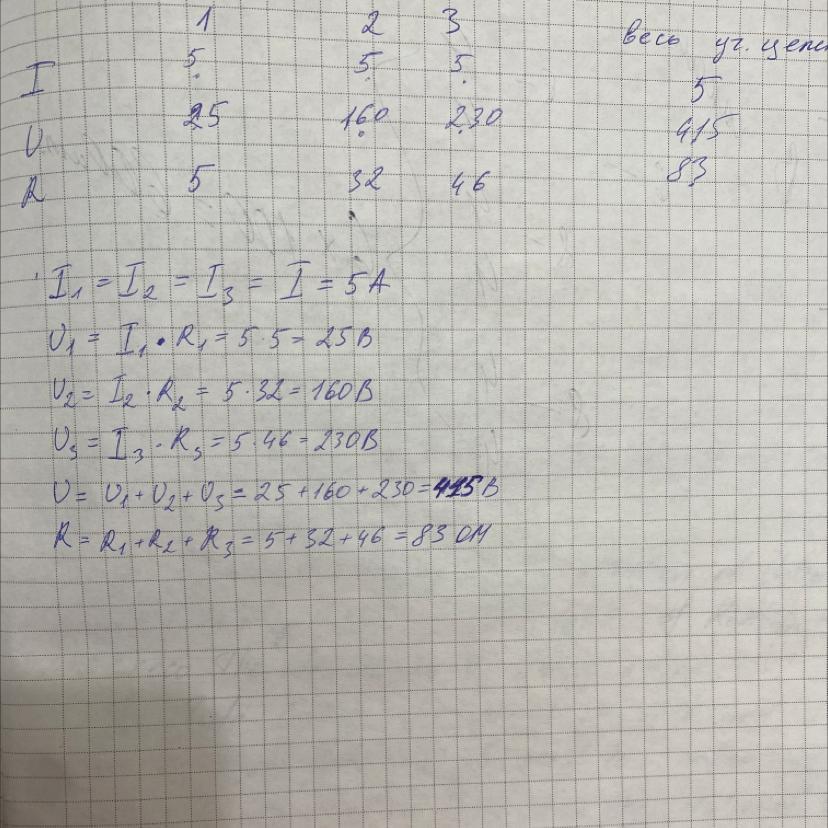 1 2 3 весь уч. цепи
I 5 5 5 5
U 25 160 230 415
R 5 32 46 83
I₁ = I₂ = I₃ = I = 5А
U₁ = I₁ · R₁ = 5 · 5 = 25В
U₂ = I₂ · R₂ = 5 · 32 = 160В
U₃ = I₃ · R₃ = 5 · 46 = 230В
U = U₁ + U₂ + U₃ = 25 + 160 + 230 = 415 В
R = R₁ + R₂ + R₃ = 5 + 32 + 46 = 83 ОМ